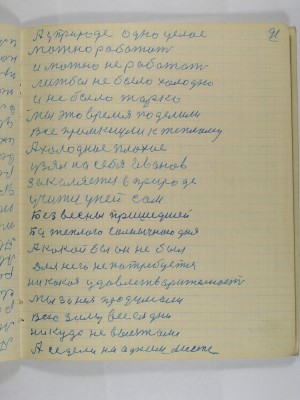 91
А у природе одно целое
можно работат
и можно не работат
лижбы не было холодно
и не было жарко
мы это время поделили
Все примкнули к теплому
А холодные плохие
узял на себя Иванов
Закаляетца у природе
учитца у ней сам
Без весны пришедшей
Без теплого солнечного дня
А какой бы он не был
Для него не потребуетца
никакая удовлетварительност
мы за них продумали
Всю зиму все одни
никуда не выежали
А седели на аднем месте